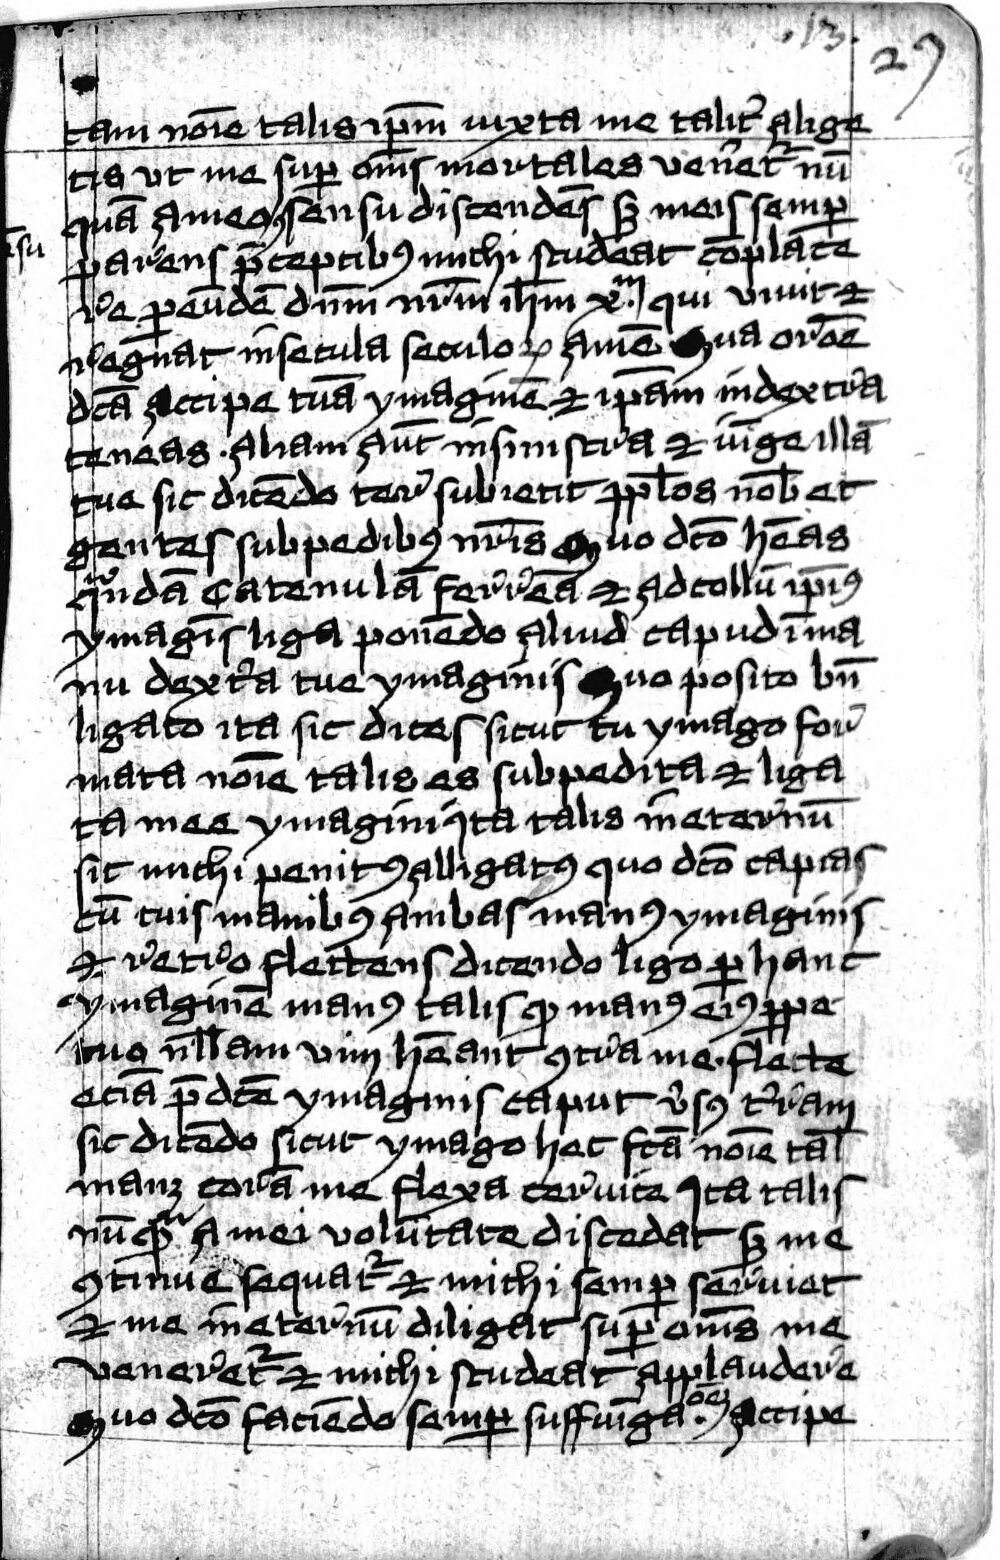 .13. 27
tam noīe talis ip̄m iuxta me talit̉ alige
tis vt me sup̱ om̄s mortales ven̉et᷑ nū
quā a meoꝫ sensu discendēs sꝫ meis semp̱
ēsu
parens p̄ceptibꝰ michi studeat cōplāce
re p̱ eundē dn̄m nr̄m ih̄m xᵐ qui viuit ⁊
regnat in secula seculoꝝ amē Qua oroē
dc̄a accipe tuā ymaginē ⁊ ip̄am in dextra
teneas . aliam aūt in sinistra ⁊ iūge illā
tue sic dicēdo ter̉ subiecit pp̄los nob̄ et
gentes sub pedibꝰ nr̄is Quo dc̄o hēas
qͣndā catenulā ferreā ⁊ ad collū ip̄iꝰ
ymagīs liga ponēdo aliud capud ī ma
nu dext̉a tue ymaginis Quo posito bn̄
ligato ita sic dices sicut tu ymago for
mata noīe talis es subpedita ⁊ liga
ta mee ymagini ita talis in eternū
sit michi penitꝰ alligatꝰ quo dc̄o capias
cū tuis manibꝰ ambas manꝰ ymaginis
⁊ retro flectens dicendo ligo p̱ hanc
ymaginē manꝰ talis qꝫ manꝰ eiꝰ p̱pe
tuo nll̄am vim hēant ꝯtra me . flecte
eciā p̄dc̄e ymaginis caput v̉sꝰ t̉ram
sic dicēdo sicut ymago hec fc̄a noīe tal̄
manꝫ corā me flexa ceruice ita talis
nūqᵐ a mei volūtate discedat sꝫ me
ꝯtinue sequat᷑ ⁊ michi semp̱ seruiet
⁊ me in eternū diligat sup̱ om̄s me
veneret᷑ ⁊ michi studeat applaudere
Quo dc̄o faciēdo semp̱ suffumigaᵒᵉˢ accipe